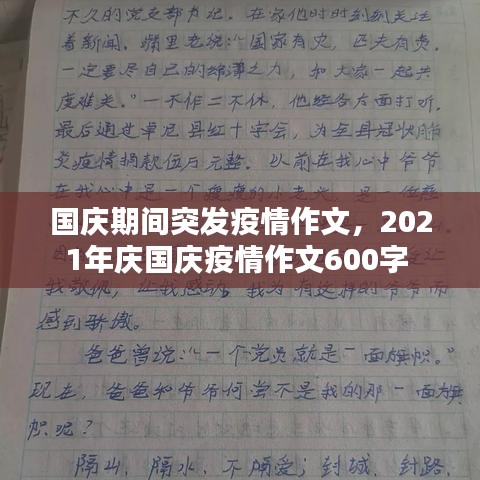 不久的党支部书记。在家他时时刻刻关注
着新闻。嘴里老说：“国家有灾，匹夫有责。
一定要尽自己的绵薄之力，和大家一起共
度难关。”一不作二不休，他经各方面打听，
最后通过卓尼县红十字会，为全县冠状肺
炎疫情捐款伍万元整。从前在我心中爷爷
在我心中是一个瘦瘦的小老头，是一位
国庆期间突发疫情作文，202
1年庆国庆疫情作文600字
我敬佩，让我感动，我为有这样的爷爷而
感到骄傲。
爸爸曾说：“一个党员就是一面旗帜。”
现在，爸爸和爷爷何尝不是我的那一面旗
帜呢？
隔山，隔水，不隔爱；封城，封路，